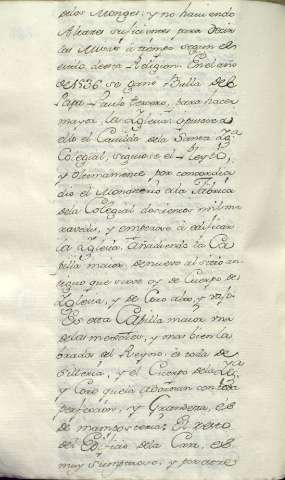 delos Monges: y no haviendo
Altares suficientes para decir
las Missas a tiempo segun el
estilo desta Religion. En el año
de 1536 se ganó Bulla del
Papa Paulo tercero, para hacer
mayor la Iglesia: opusose a
ello el Cavildo dela Santa Igª
Colegial, siguiose el Pleyto,
y ultimamente, por concordia
dio el Monasterio ala Fabrica
dela Colegial docientos mil ma
ravedis, y empezaron a edificar
la Iglesia. Añadiendo la Ca
pilla maior, de nuevo al sitio an
tiguo que sirve oy de Cuerpo de
Iglesia, y de Coro alto, y bajo
Es esta Capilla maior una
delas mejores, y mas bien la
bradas del Reyno: es toda de
silleria, y el Cuerpo dela Igª
y Coro que la adornan con toda
perfeccion, y Grandeza, es
de mamposteria: El resto
del Edificio dela Casa, es
muy sumptuoso, y por acre